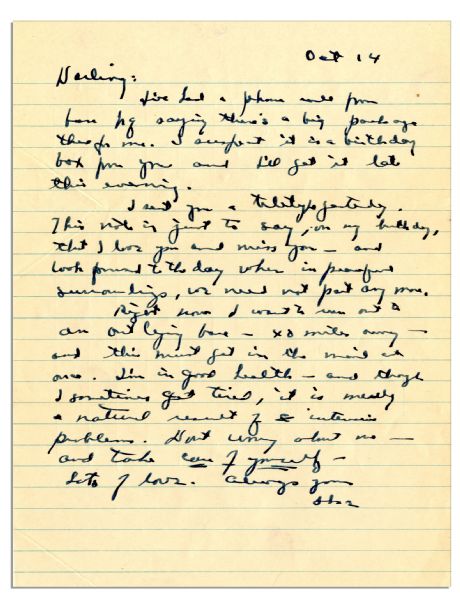 Oct 14
Darling:
I've had a phone call from
base hq saying there's a big package
there for me. I suspect it is a birthday
box from you and I'll get it late
this evening.
I sent you a yesterday.
This note is just to say, on my birthday,
that I love you and miss you — and
look forward to the day when in peaceful
surroundings, we need not part any more.
Right now I want to run out to
an out lying base — miles away —
and this must get in the mail at
once. I'm in good health — and though
I sometimes get tired, it is merely
a natural result of intensive
problems. Don't worry about me —
and take care of yourself —
Lots of love. Always your
Ike